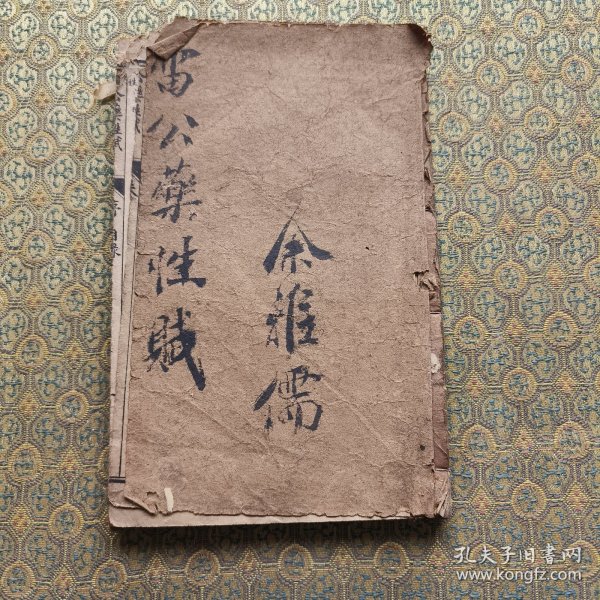 雷公藥性賦
余雅儒
孔夫子旧书网
www.kongfz.com